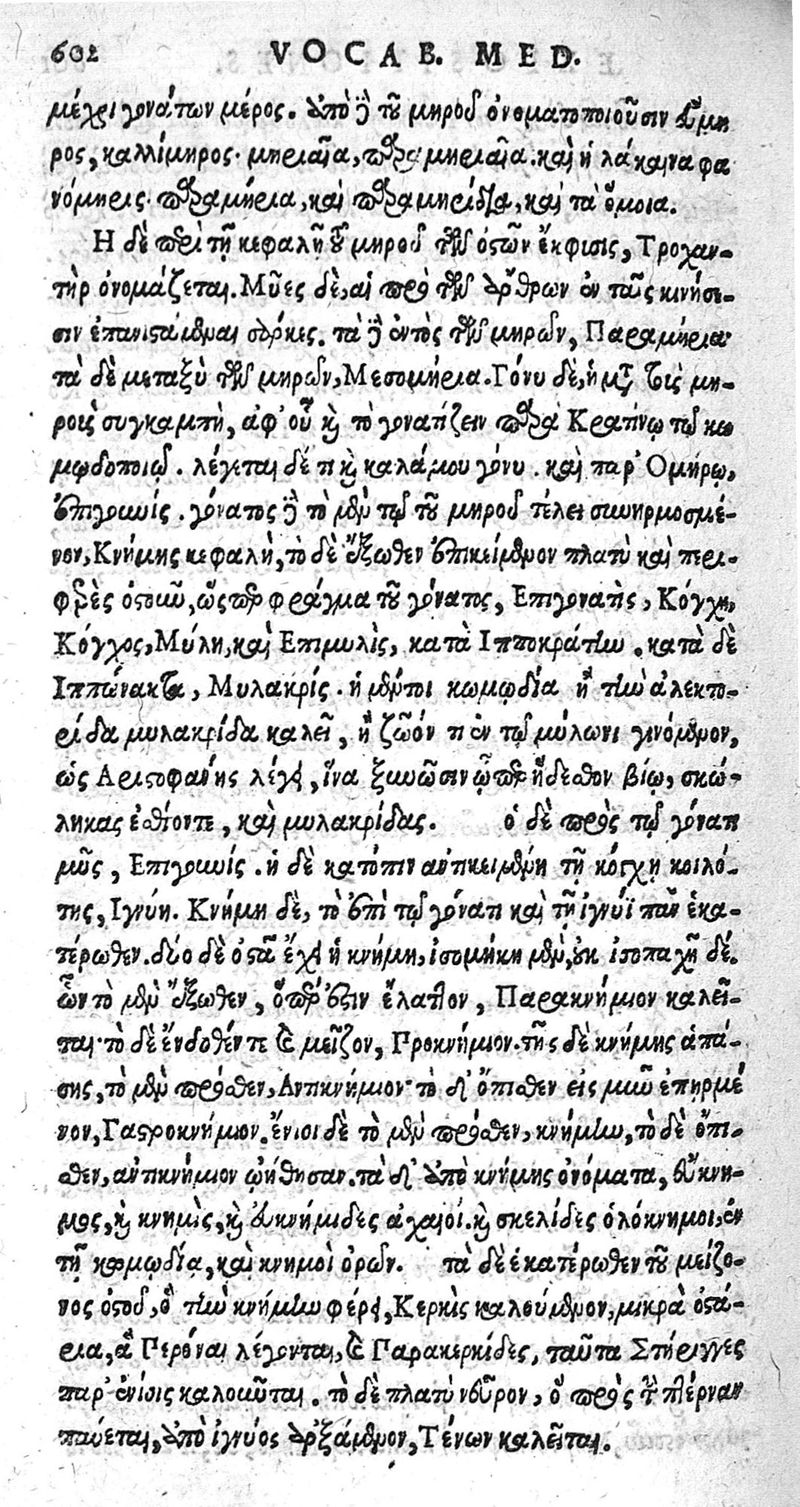 602 VOCAB. MED.
μέχρι γονάτων μέρος. ἀπὸ δὲ τοῦ μηροῦ ὀνοματοποιοῦσιν εὔμη
ρος, καλλίμηρος· μηριαῖα, παραμηριαῖα. καὶ ἡ λάκαινα φα
νόμηρις· παραμήρια, καὶ παραμηρίδια, καὶ τὰ ὅμοια.
Η δὲ περὶ τῇ κεφαλῇ τοῦ μηροῦ τῶν ὀστῶν ἔκφισις, Τροχαν-
τὴρ ὀνομάζεται. Μῦες δὲ, αἱ πρὸ τῶν ἄρθρων ἐν ταῖς κινήσε-
σιν ἐπανιστάμεναι σάρκες. τὰ δὲ ἐντὸς τῶν μηρῶν, Παραμήρια·
τὰ δὲ μεταξὺ τῶν μηρῶν, Μεσομήρια. Γόνυ δὲ, ἡ μετὰ τοῖς μη-
ροῖς συγκαμπὴ, ἀφ' οὗ καὶ τὸ γονατίζειν παρὰ Κρατίνῳ τῷ κω
μῳδοποιῷ. λέγεται δέ τι καὶ καλάμου γόνυ. καὶ παρ' Ομήρῳ,
ἐπιγουνίς. γόνατος δὲ τὸ μὲν τῷ τοῦ μηροῦ τέλει συνηρμοσμέ-
νον, Κνήμης κεφαλὴ, τὸ δὲ ἔξωθεν ἐπικείμενον πλατὺ καὶ περι-
φερὲς ὀστοῦν, ὥσπερ φράγμα τοῦ γόνατος, Επιγονατὶς, Κόγχη,
Κόγχος, Μύλη, καὶ Επιμυλὶς, κατὰ Ιπποκράτην. κατὰ δὲ
Ιππώνακτα, Μυλακρίς. ἡ μέντοι κωμῳδία ἢ τὴν ἀλεκτο-
ρίδα μυλακρίδα καλεῖ, ἢ ζῶόν τι ἐν τῷ μύλωνι γινόμενον,
ὡς Αριστοφάνης λέγει, ἵνα ξυνῶσιν ᾧπερ ἥδεσθον βίῳ, σκώ-
ληκας ἐσθίοντε, καὶ μυλακρίδας. ὁ δὲ πρὸς τῷ γόνατι
μῦς, Επιγουνίς. ἡ δὲ κατόπιν ἀντικειμένη τῇ κόγχῃ κοιλό-
της, Ιγνύη. Κνήμη δὲ, τὸ ἐπὶ τῷ γόνατι καὶ τῇ ἰγνύϊ πᾶν ἑκα-
τέρωθεν. δύο δὲ ὀστᾶ ἔχει ἡ κνήμη, ἰσομήκη μὲν, οὐκ ἰσοπαχῆ δέ.
ὧν τὸ μὲν ἔξωθεν, ὅπερ ἐστὶν ἔλαττον, Παρακνήμιον καλεῖ-
ται· τὸ δὲ ἔνδοθέν τε καὶ μεῖζον, Προκνήμιον. τῆς δὲ κνήμης ἁπά-
σης, τὸ μὲν πρόσθεν, Αντικνήμιον· τὸ δ' ὄπισθεν εἰς μυῶν ἐπηρμέ
νον, Γαστροκνήμιον. ἔνιοι δὲ τὸ μὲν πρόσθεν, κνήμην, τὸ δὲ ὄπι-
σθεν, ἀντικνήμιον ᾠήθησαν. τὰ δ' ἀπὸ κνήμης ὀνόματα, εὔκνη-
μος, καὶ κνημὶς, καὶ ἐυκνήμιδες ἀχαιοί. καὶ σκελίδες ὁλόκνημοι, ἐν
τῇ κωμῳδίᾳ, καὶ κνημοὶ ὀρῶν. τὰ δὲ ἑκατέρωθεν τοῦ μείζο-
νος ὀστοῦ, ὃ τὴν κνήμην φέρει, Κερκὶς καλούμενον, μικρὰ ὀστά-
ρια, ἃ Περόναι λέγονται, καὶ Παρακερκίδες, ταῦτα Στήριγγες
παρ' ἐνίοις καλοῦνται. τὸ δὲ πλατὺ νεῦρον, ὃ πρὸς τὴν πτέρναν
παύεται, ἀπὸ ἰγνύος ἀρξάμενον, Τένων καλεῖται.